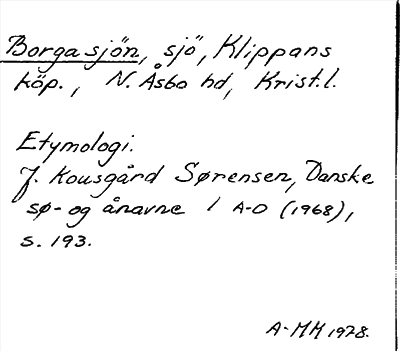 Borgasjön, sjö, Klippans
köp., N. Åsbo hd, Krist.l.
Etymologi.
J. Kousgård Sørensen, Danske
sø- og ånavne 1 A-D (1968),
s. 193.
A-MM 1978.